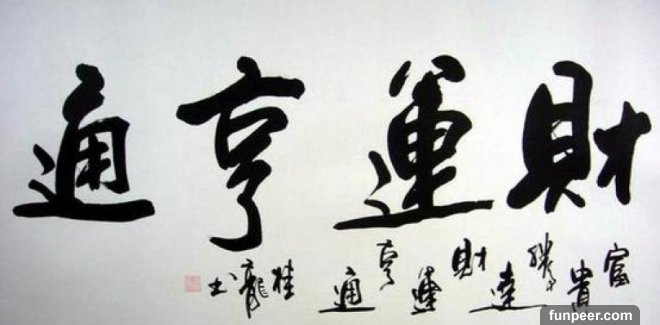 財運亨通
富貴達財運亨通
桂龍书
funpeer.com